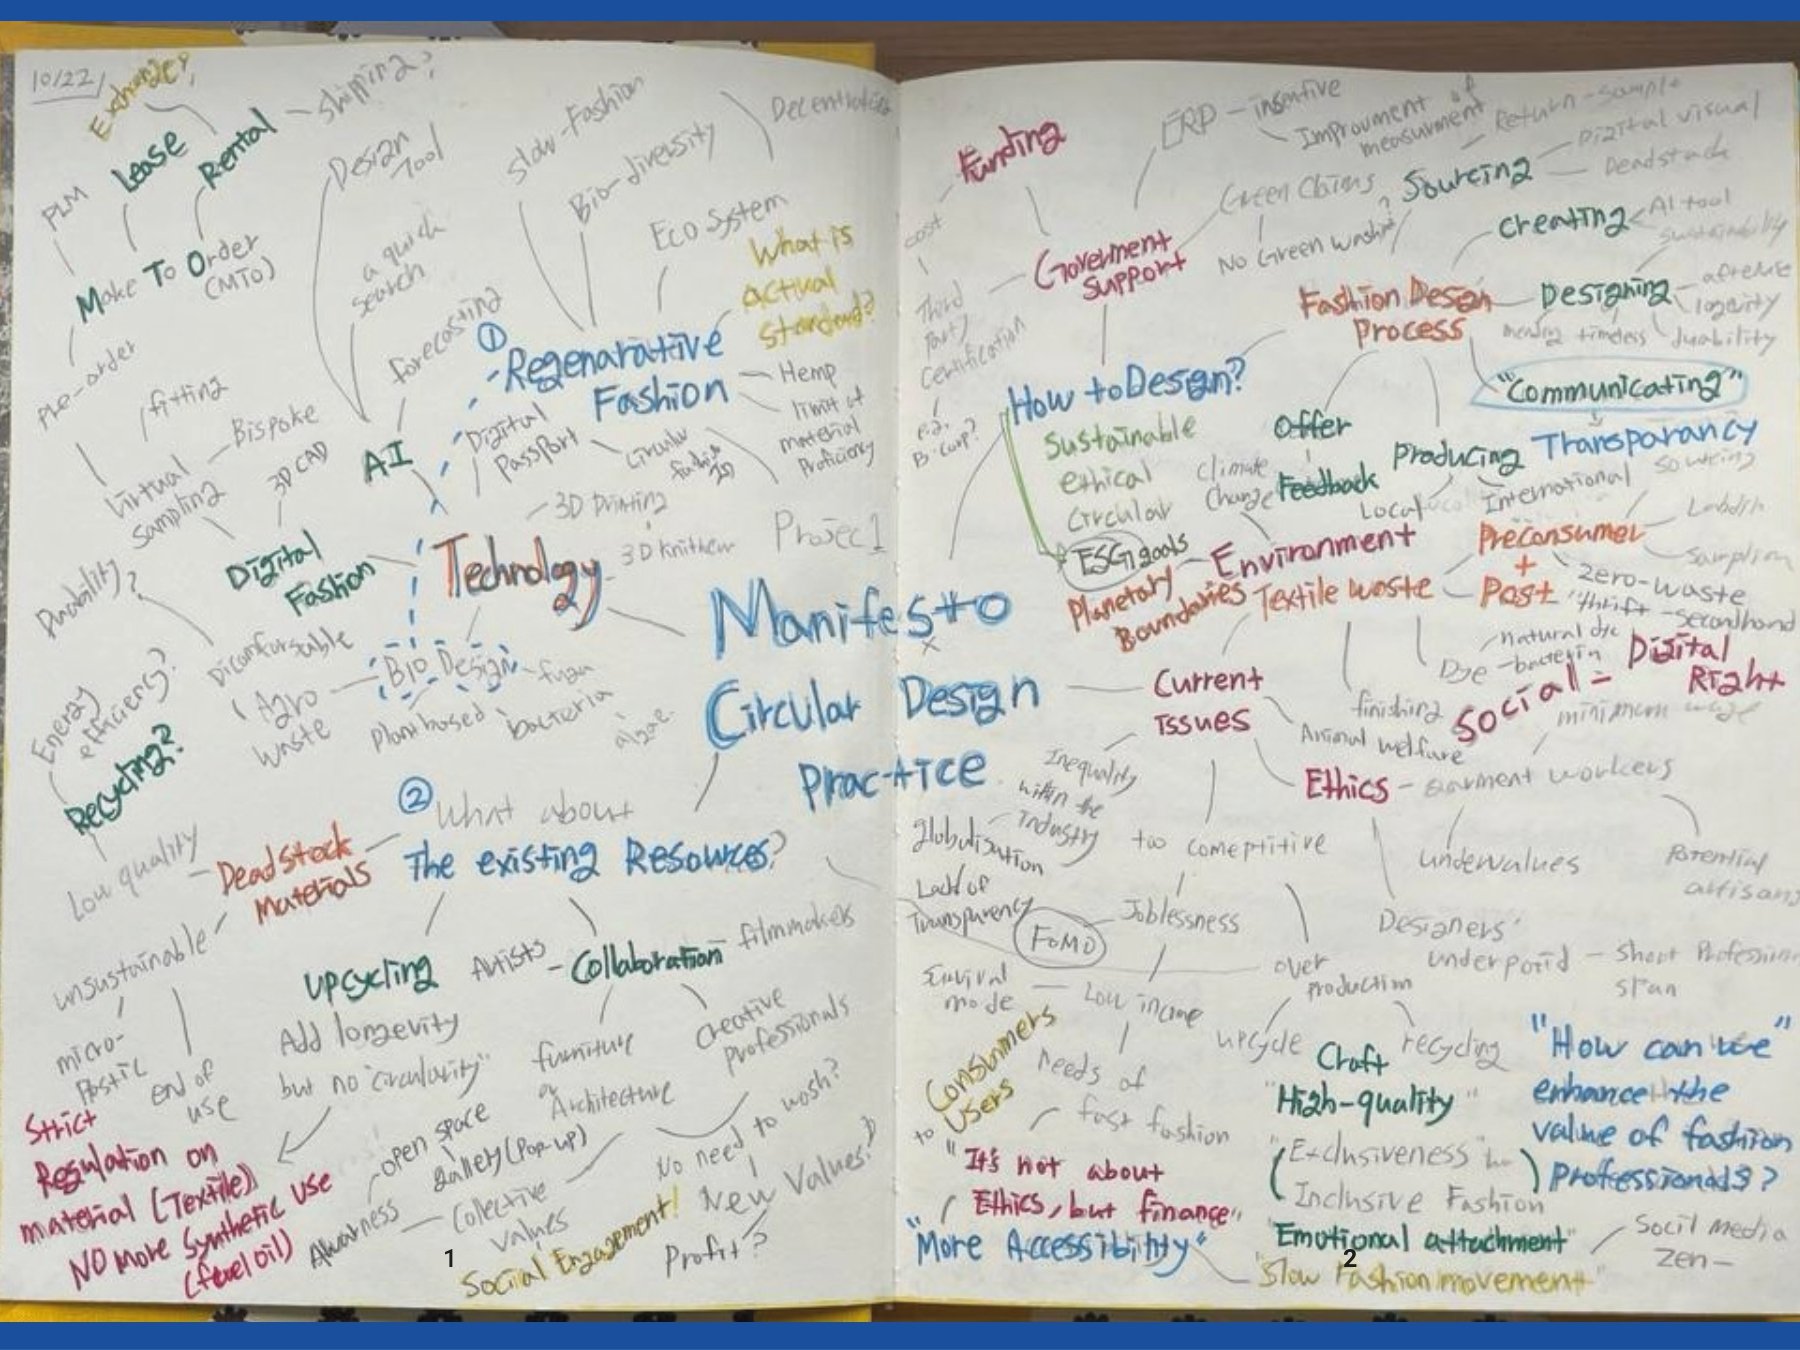 10/22
Exchange?
Lease
Rental
Shipping?
PLM
Make To Order
(MTO)
Pre-order
Design
Tool
a quick
search
forecasting
Slow-Fashion
Bio-diversity
Eco System
What is
actual
standard?
①
Regenarative
Fashion
Hemp
limit of
material
Proficiency
Digital
Passport
circular
fitting
Bispoke
Virtual
Sampling
3D CAD
AI
Digital
Fashion
Technology
3D Printing
Project 1
Durability?
Energy
efficiency?
Recycling?
Low quality
Agro
waste
Bio Design
plant based
bacteria
algae
Manifesto
x
Circular Design
Practice
②
What about
The existing Resources?
Deadstock
Materials
unsustainable
micro-
Pastic
end of
use
Upcycling
Add longevity
but no "circularity"
Artists
Collaboration
filmmakers
furniture
or
Architecture
Creative
professionals
Strict
Regulation on
material (Textile)
NO more Synthetic use
(fuel oil)
Awarness
open space
Gallery (Pop-up)
Collective
values
Social Engagement!
No need to wash?
New Values?
Profit?
1
Funding
cost
Third
Party
Certification
e.g.
B-corp?
Goverment
Support
ERP - insentive
Improvment of
measurment
Green Claims
No Green washing
?
Sourcing
Return-sample
Digital visual
Deadstock
Creating
AI tool
sustainability
Fashion Design
Process
Designing
logevity
timeless
durability
"Communicating"
Transparancy
How to Design?
Sustainable
ethical
Circular
ESG goals
Offer
Feedback
Producing
Local
International
sourcing
climate
change
Environment
Planetary
Boundaries
Textile waste
Preconsumer
+
Post
Zero-waste
thrift - secondhand
natural dye
Dye - bacteria
finishing
Social - Digital
Right
minimum wage
Current
issues
Animal welfare
Ethics - Garment workers
undervalues
Potential
artisans
Inequality
within the
Industry
globalisation
Lack of
Transparency
FOMO
too comeptitive
Joblessness
Survival
mode
Low income
over
production
upcycle
recycling
Designers'
underpaid - Short Profession
span
Consumers
to Users
needs of
fast fashion
"It's not about
Ethics, but finance"
"More Accessibility"
Craft
"High-quality"
"Exclusiveness"
Inclusive Fashion
"Emotional attachment"
"Slow Fashion movement"
"How can we"
enhance the
value of fashion
Professionals?
Socil media
Zen-
2